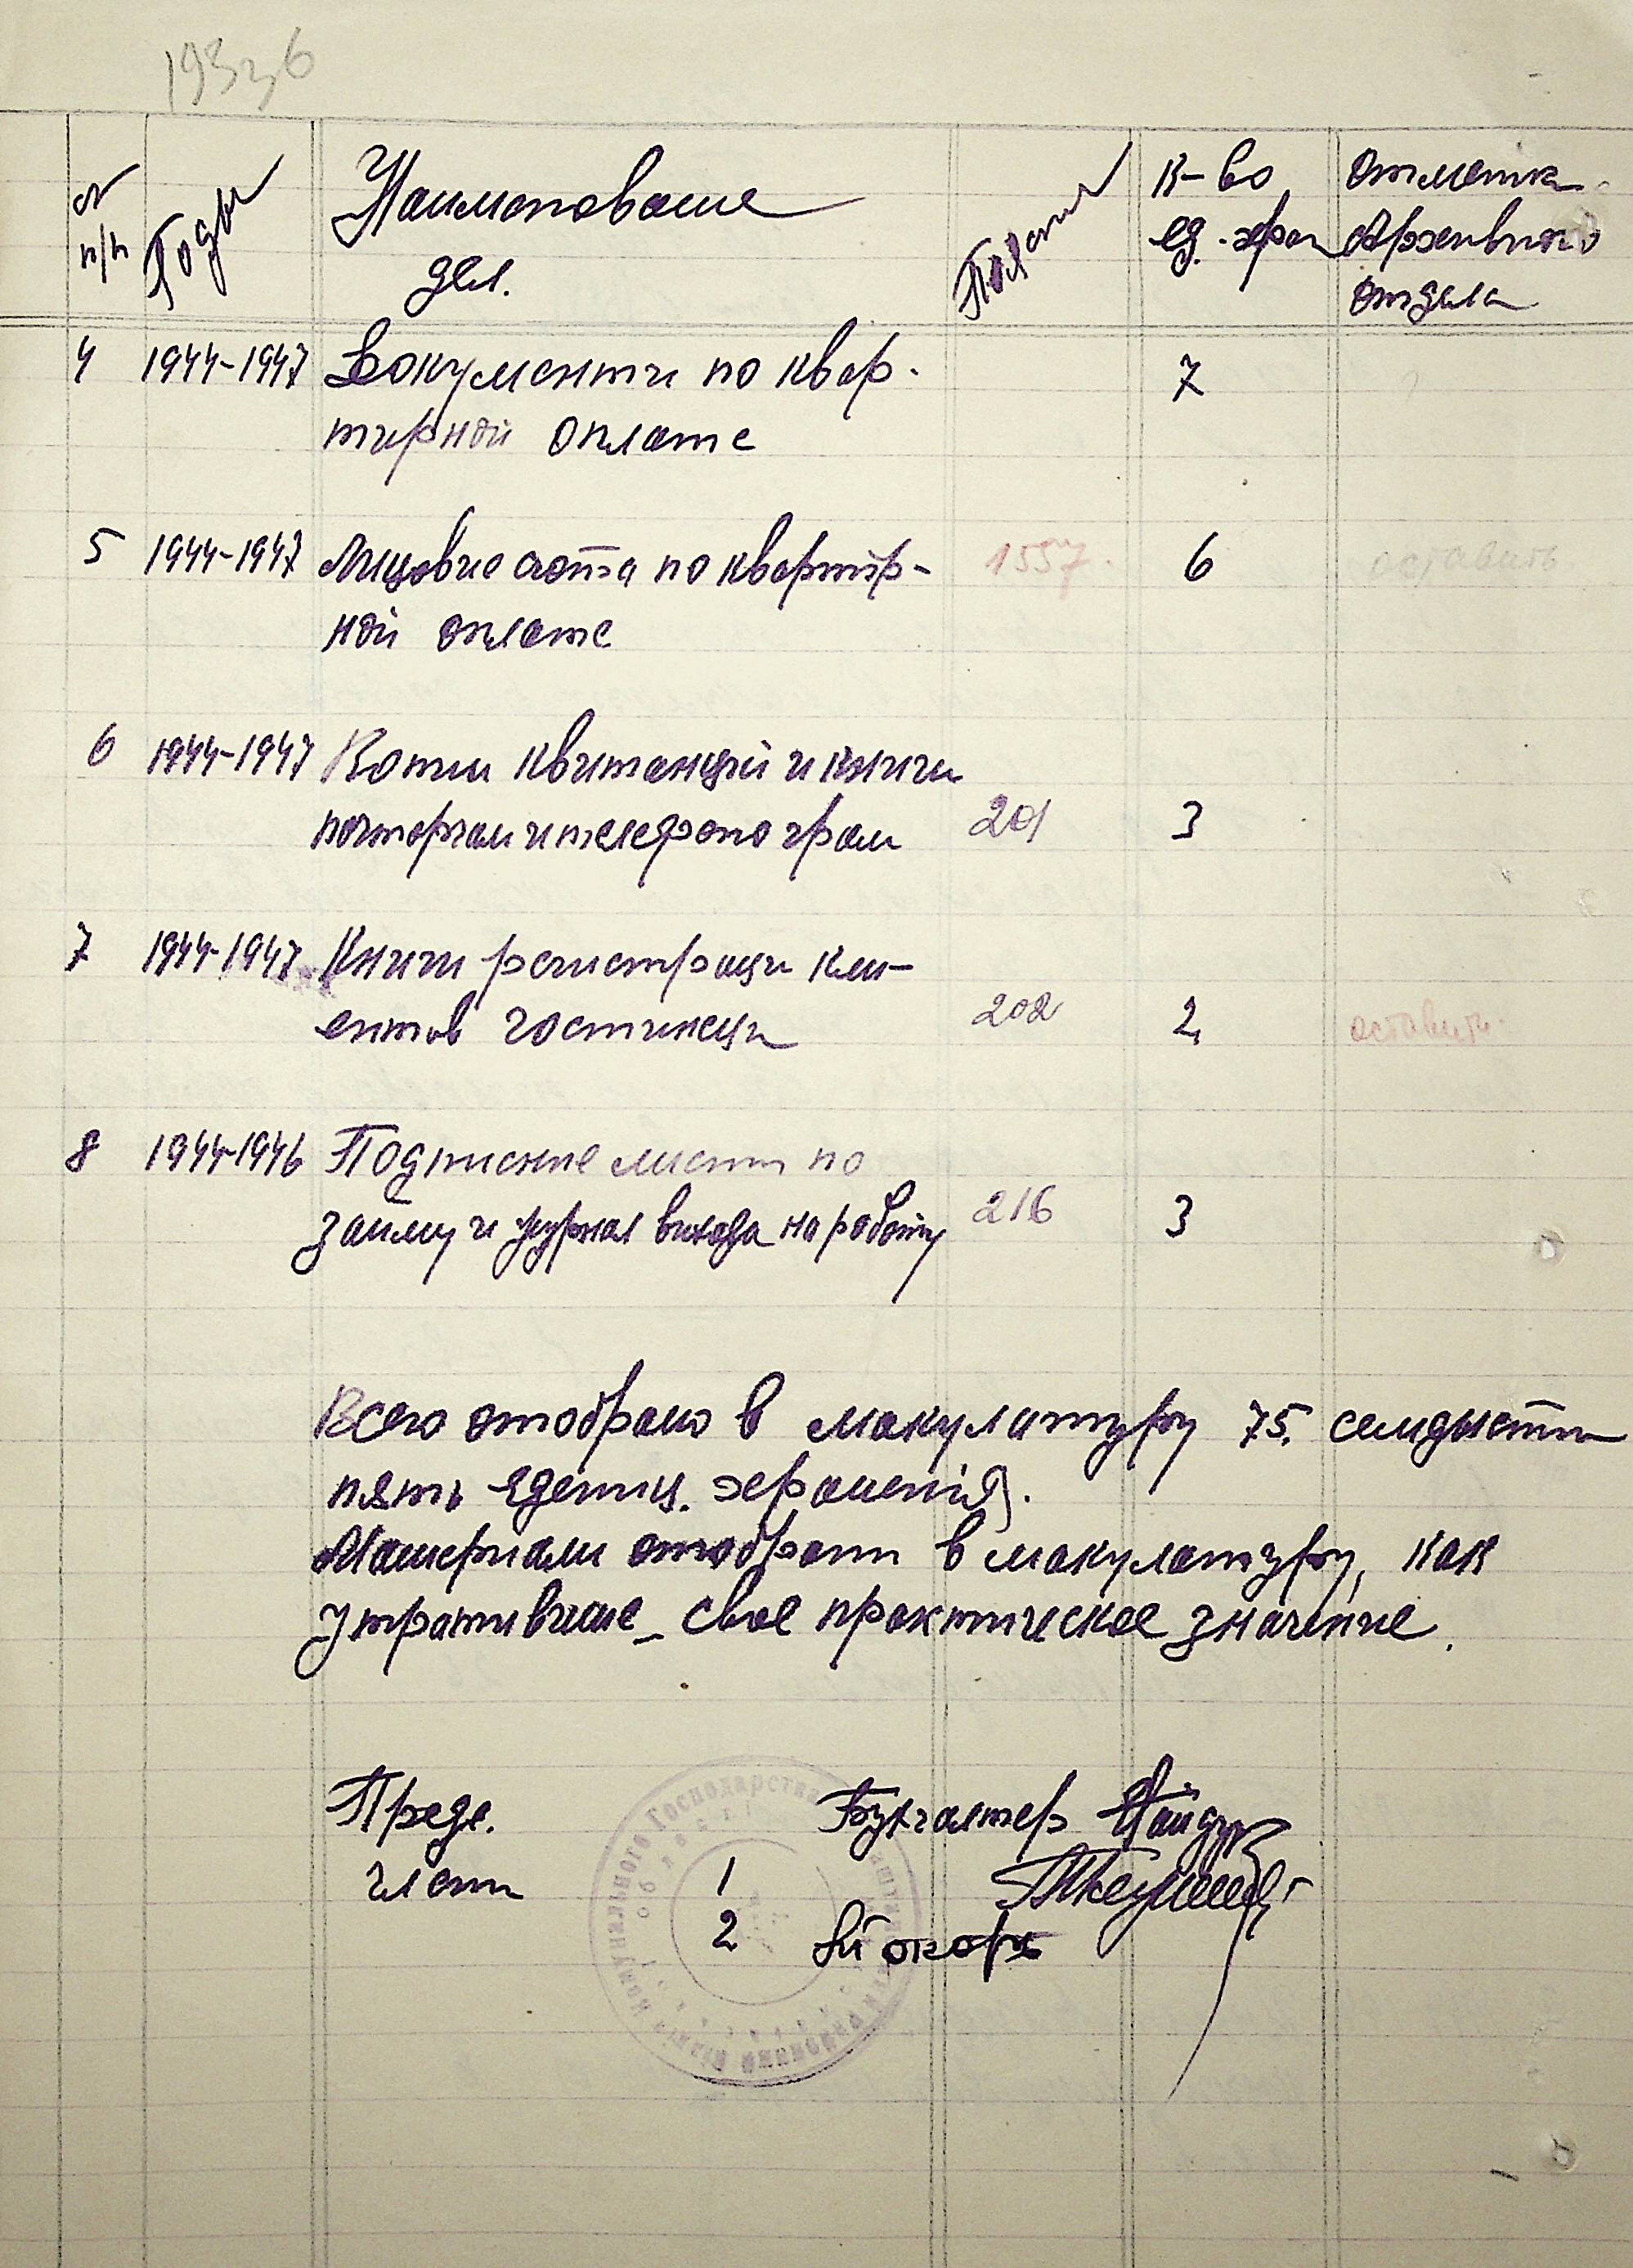 п/п
Годы
Наименование
дел.
К-во
ед. хран
Отметка
Архивного
отдела
4 1944-1947 Документи по квар-
тирной оплате 7
5 1944-1947 Лицовие счета по квартир- 1557. 6 оставить
ной оплате
6 1944-1947 Копии квитанций и книги
почторгам и телефонограм 201 3
7 1944-1947 Книги регистраци кли-
ентов гостиници 202 2 оставить
8 1944-1946 Подписние листи по
займу и журнал вихода на работу 216 3
Всего отобрано в макулатуру 75. семдести
пять едениц. хранения.
Материали отобрани в макулатуру, как
утратившие свое практическое значение.
Пред. Бухгалтер
члени 1
2